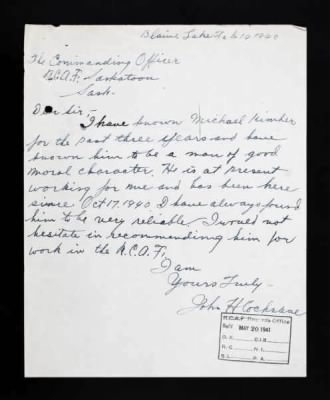 Blaine Lake Feb 19 1940
The Commanding Officer
R.C.A.F. Saskatoon
Sask.
Dear Sir:-
I have known Michael Kimber
for the past three years and have
known him to be a man of good
moral character. He is at present
working for me and has been here
since Oct 17. 1940 I have always found
him to be very reliable. I would not
hesitate in recommending him for
work in the R.C.A.F.
I am
Yours Truly
John H Cochrane
R.C.A.F. Records Office
Rec'd MAY 20 1941